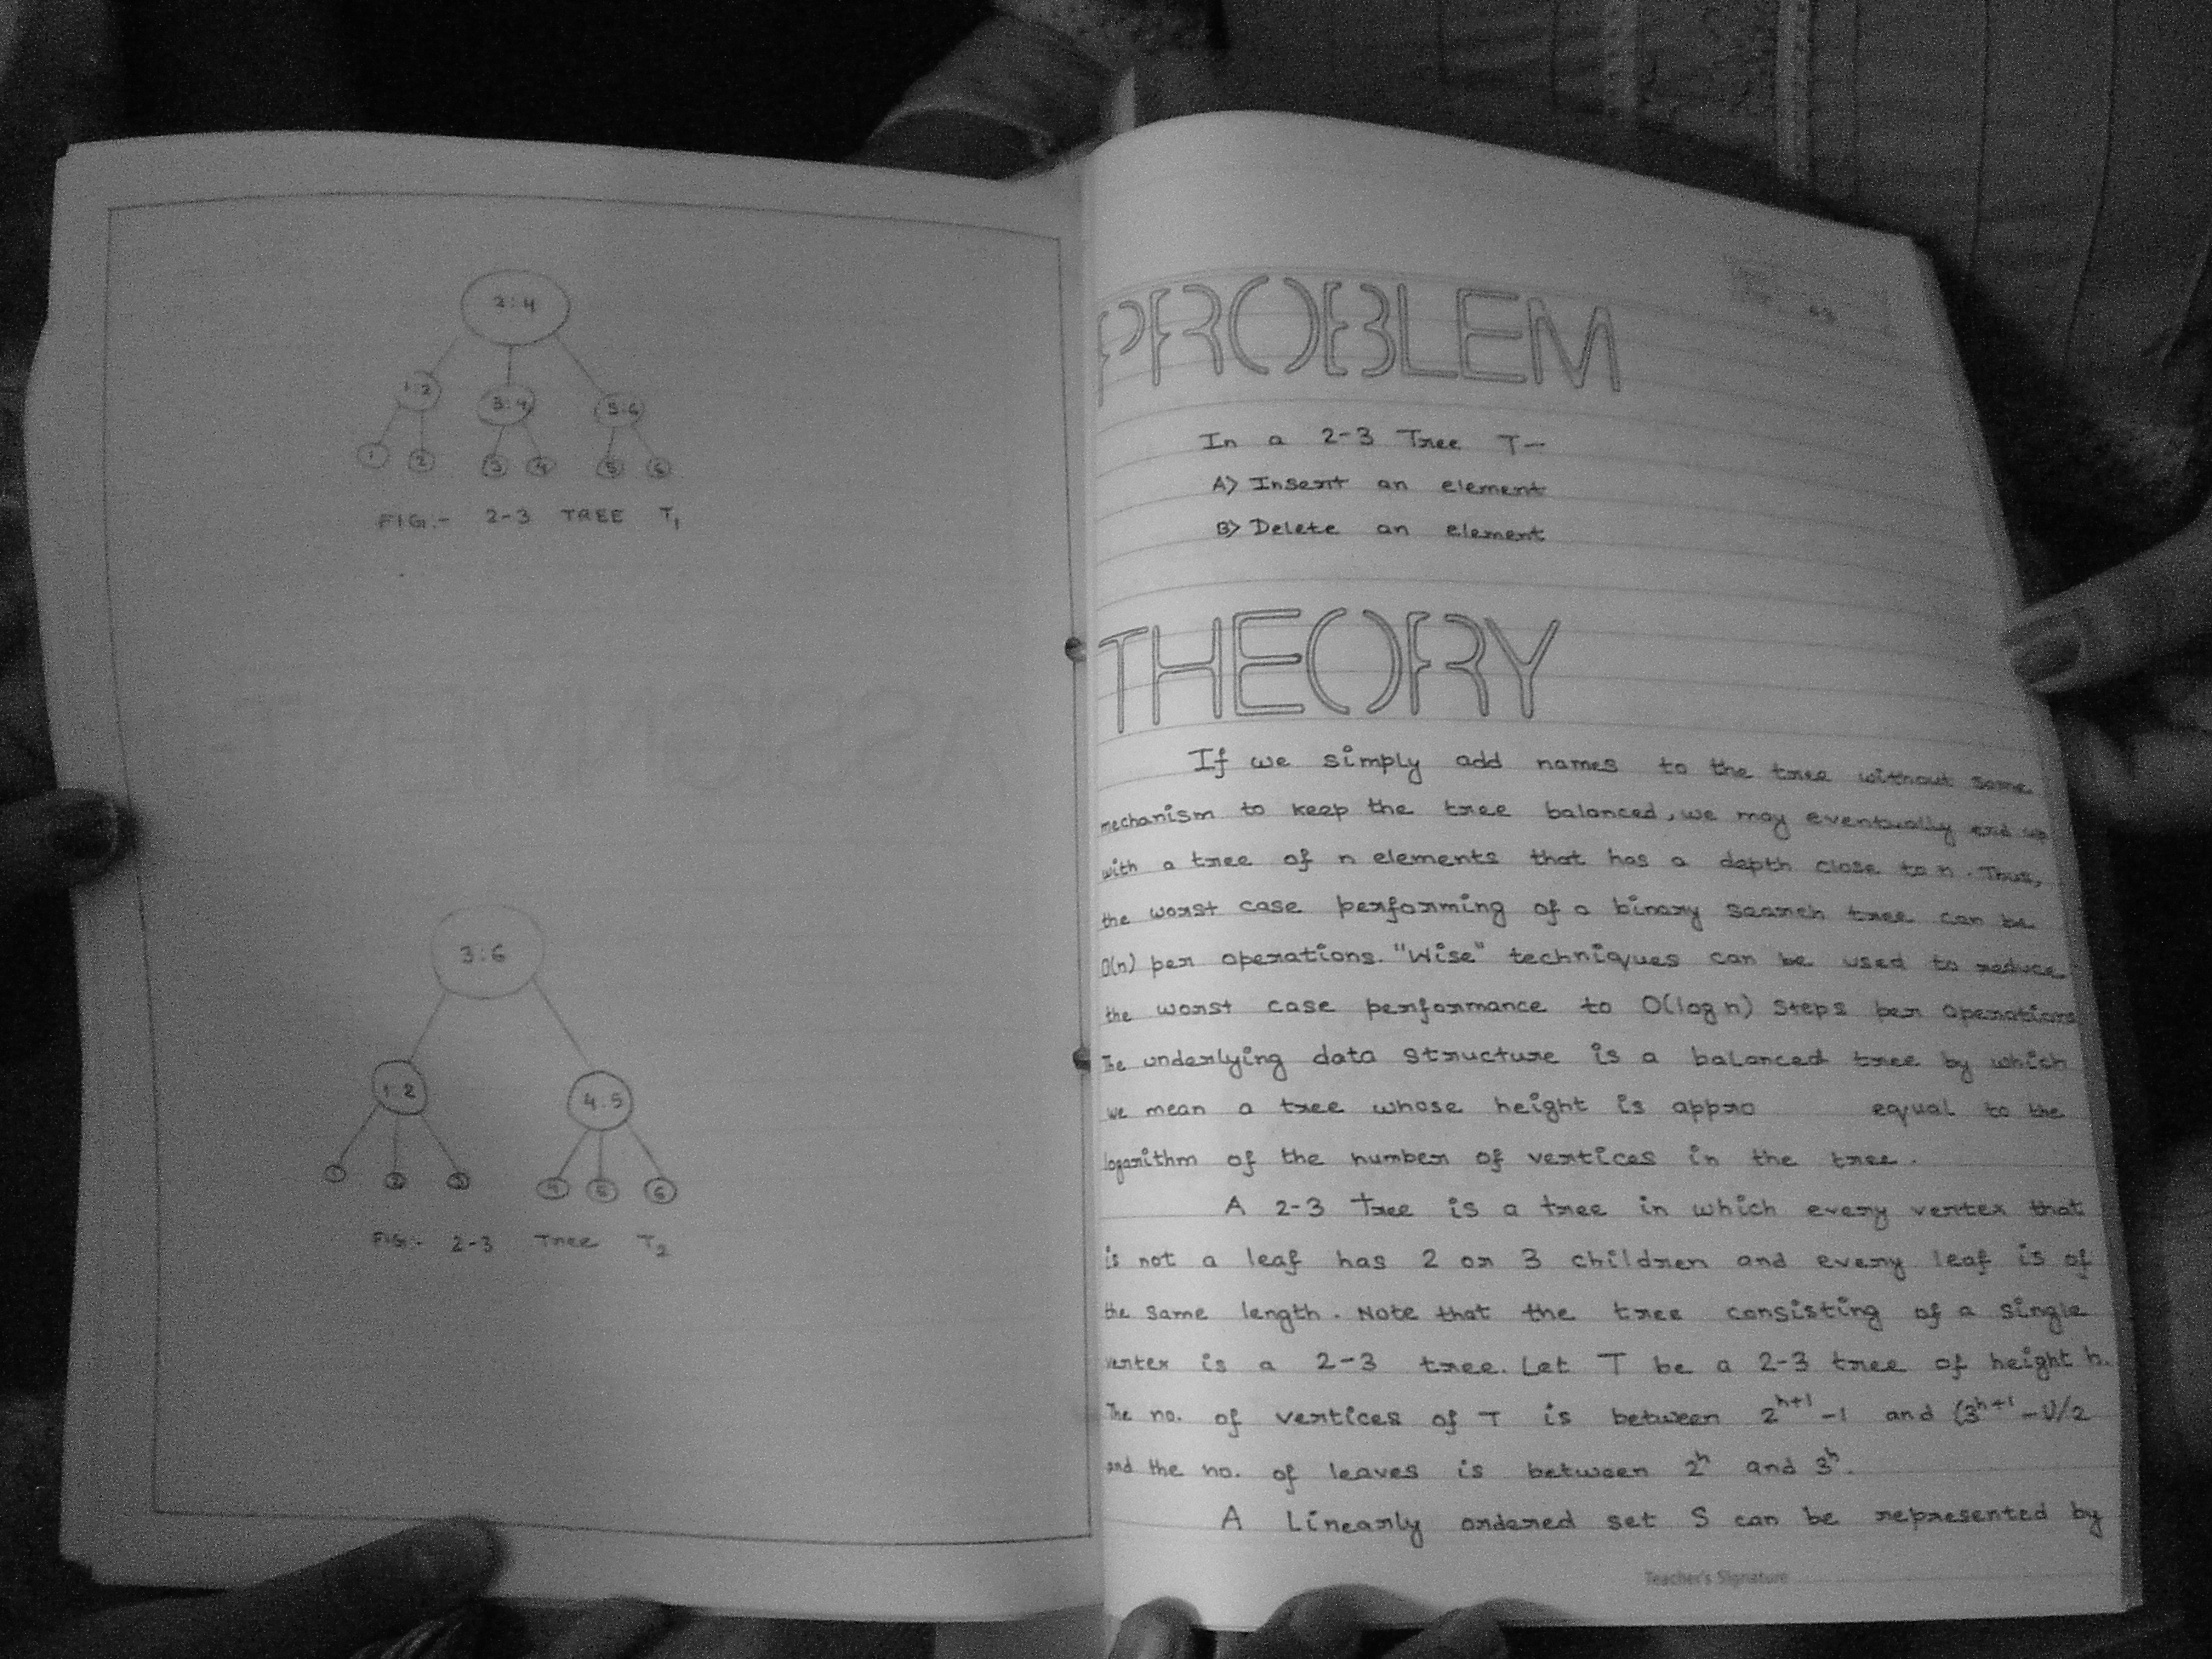 2:4
1:2 3:4 5:6
1 2 3 4 5 6
FIG:- 2-3 TREE T₁
3:6
1:2 4:5
2 3 4 5 6
FIG:- 2-3 Tree T₂
PROBLEM
In a 2-3 Tree T—
A> Insert an element
B> Delete an element
THEORY
If we simply add names to the tree without some
mechanism to keep the tree balanced, we may eventually end up
with a tree of n elements that has a depth close to n. Thus,
the worst case performing of a binary search tree can be
O(n) per operations. "Wise" techniques can be used to reduce
the worst case performance to O(log n) Steps per operations
The underlying data structure is a balanced tree by which
we mean a tree whose height is appro equal to the
logarithm of the number of vertices in the tree.
A 2-3 Tree is a tree in which every vertex that
is not a leaf has 2 or 3 children and every leaf is of
the same length. Note that the tree consisting of a single
vertex is a 2-3 tree. Let T be a 2-3 tree of height h.
The no. of vertices of T is between 2^h+1 -1 and (3^h+1 -1)/2
and the no. of leaves is between 2^h and 3^h.
A Linearly ordered set S can be represented by
Teacher's Signature